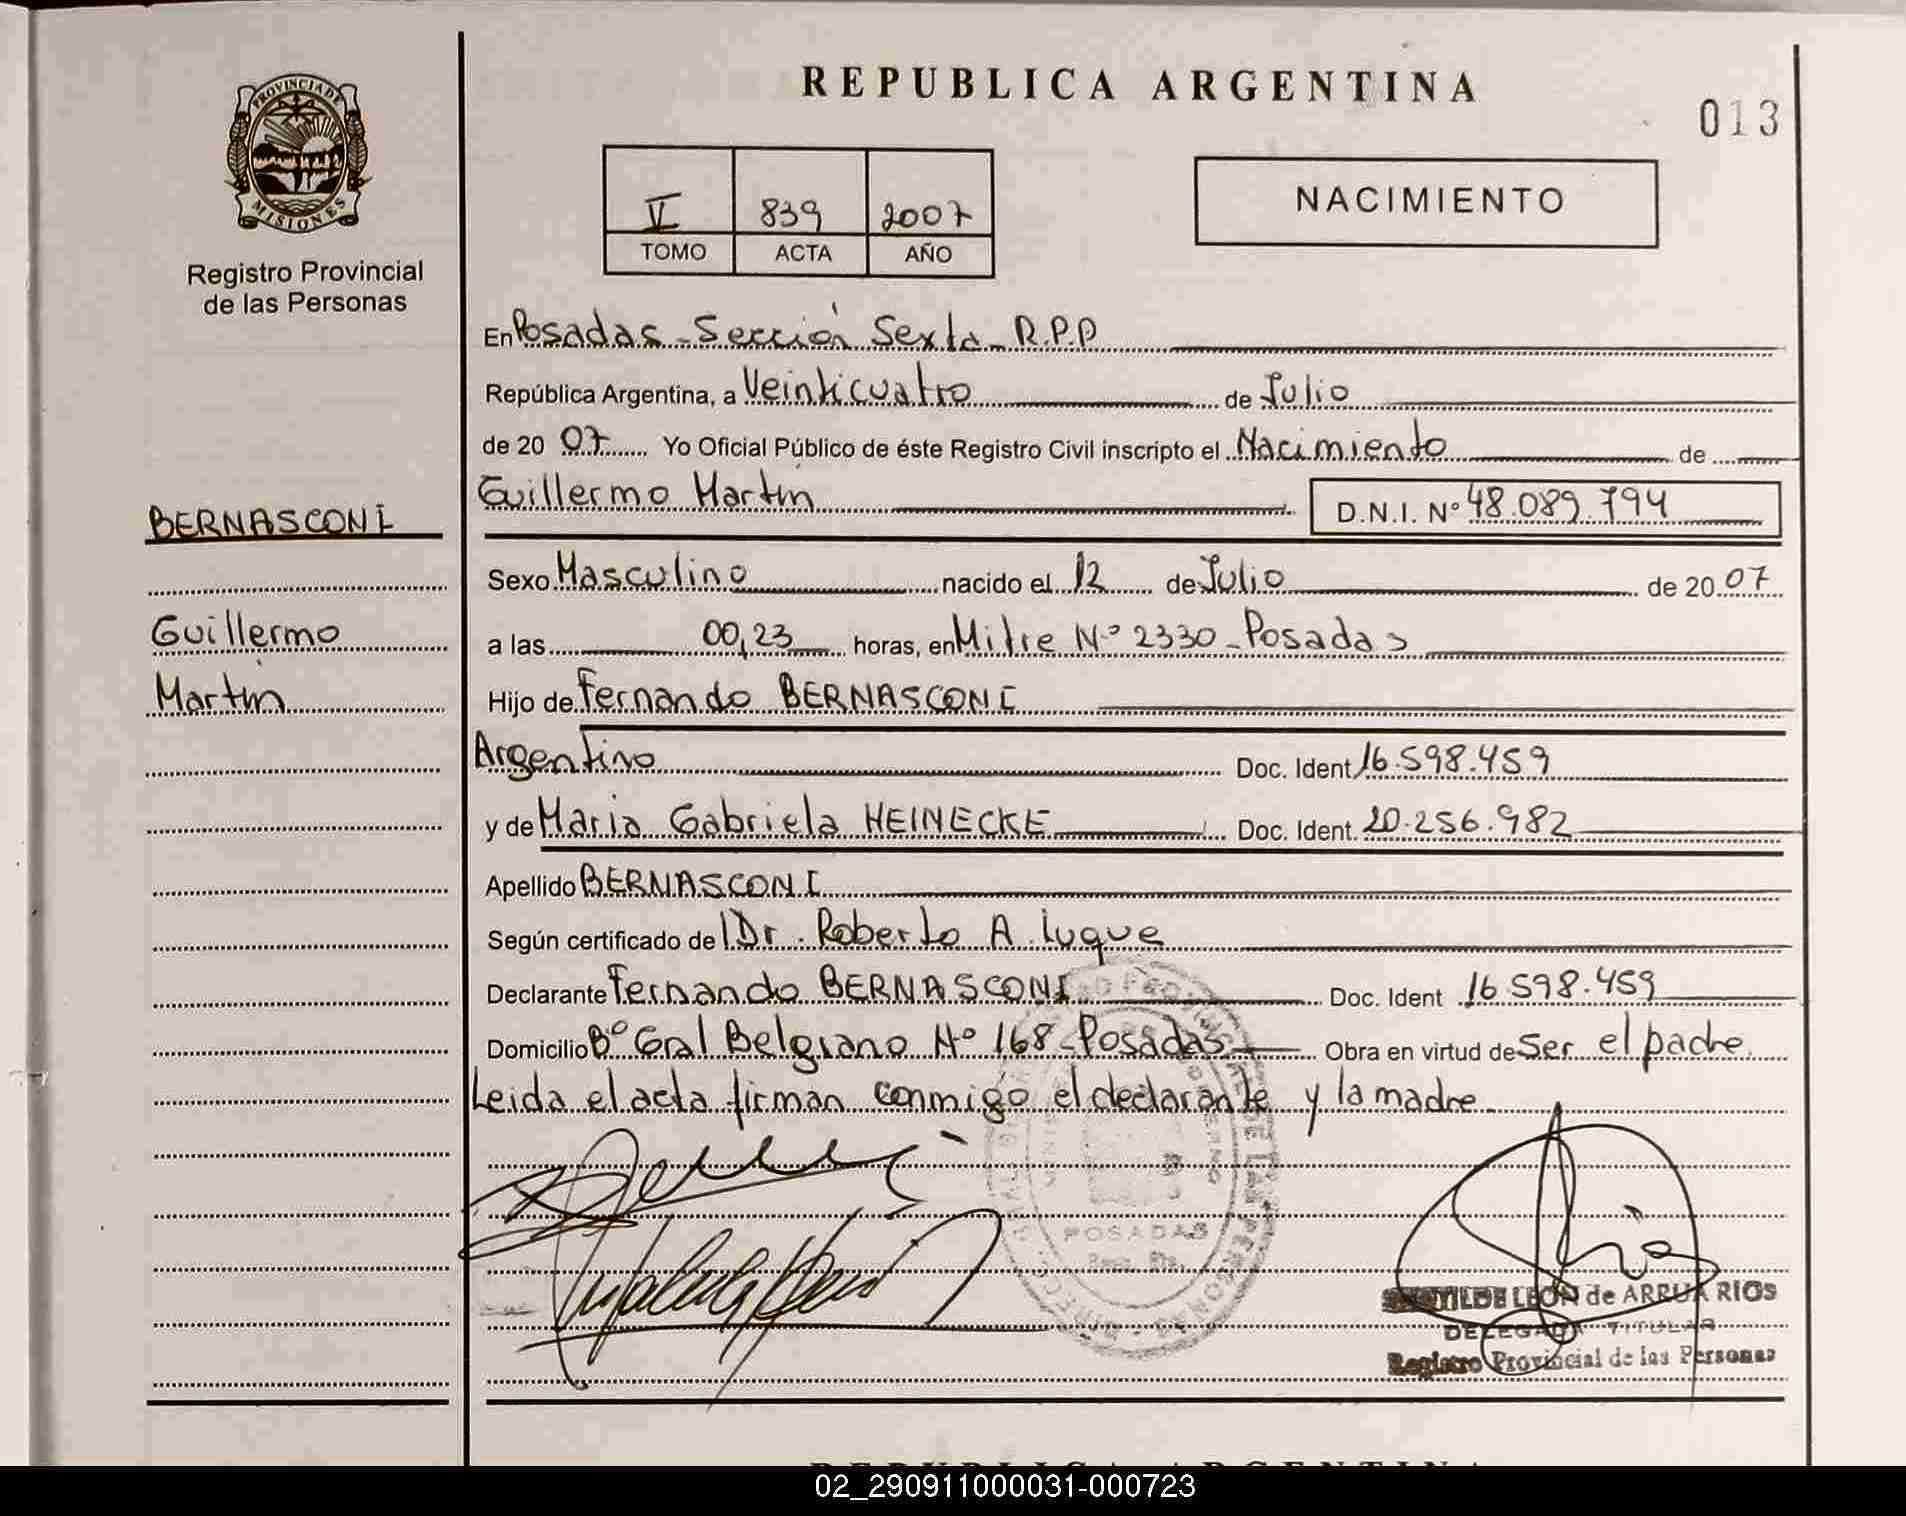 REPUBLICA ARGENTINA
013
PROVINCIA DE
MISIONES
Registro Provincial
de las Personas
V 839 2007
TOMO ACTA AÑO
NACIMIENTO
En Posadas - Sección Sexta - R.P.P
República Argentina, a Veinticuatro de Julio
de 20 07 Yo Oficial Público de éste Registro Civil inscripto el Nacimiento de
Guillermo Martín D.N.I. Nº 48.089.794
BERNASCONI
Guillermo
Martín
Sexo Masculino nacido el 12 de Julio de 20 07
a las 00,23 horas, en Mitre Nº 2330 - Posadas
Hijo de Fernando BERNASCONI
Argentino Doc. Ident 16.598.459
y de Maria Gabriela HEINECKE Doc. Ident. 20.256.982
Apellido BERNASCONI
Según certificado de Dr. Roberto A. Luque
Declarante Fernando BERNASCONI Doc. Ident 16.598.459
Domicilio Bº Gral Belgrano Nº 168 - Posadas Obra en virtud de Ser el padre
Leida el acta firman conmigo el declarante y la madre
POSADAS
LEON de ARRUA RIOS
DELEGADA TITULAR
Registro Provincial de las Personas
REPUBLICA ARGENTINA
02_290911000031-000723